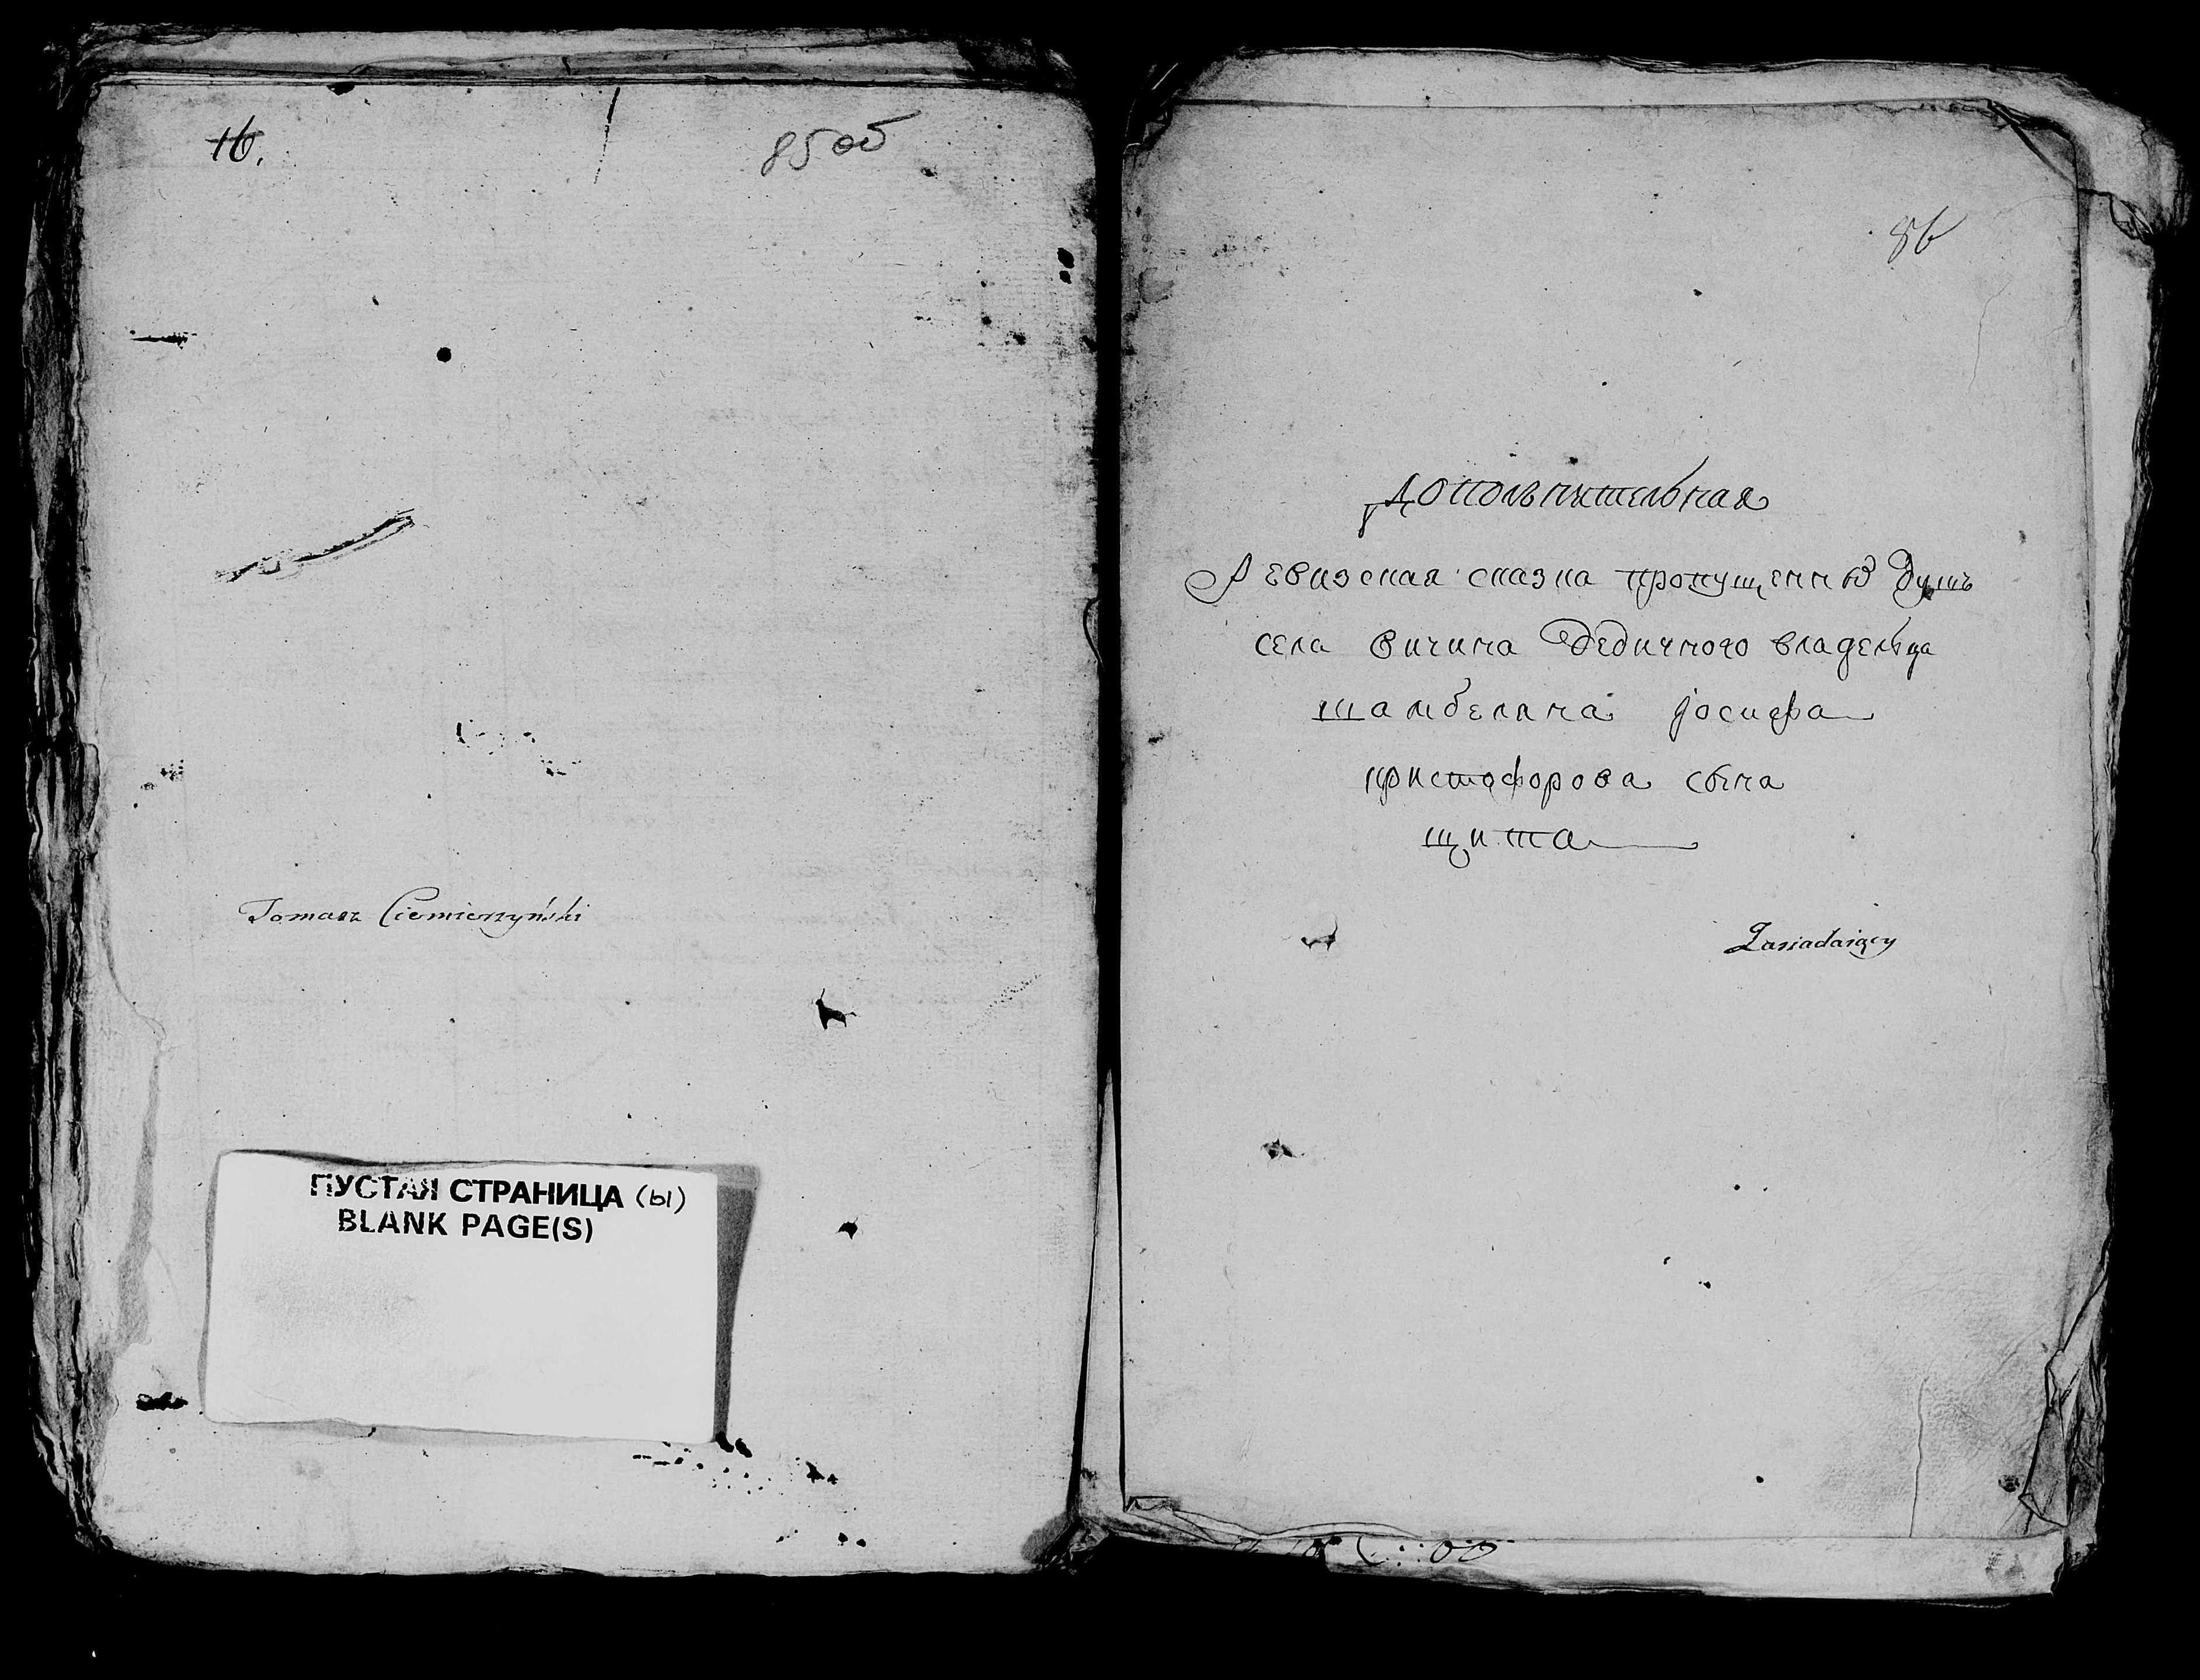 16.
85об
Tomasz Ciemierzyński
ПУСТАЯ СТРАНИЦА (ы)
BLANK PAGE(S)
86
Дополънителъная
Ревизская сказка пропущенныхъ душъ
села вичина Дедичного владельца
шамбеляна јосифа
христофорова сына
щита
Zasiadaiący